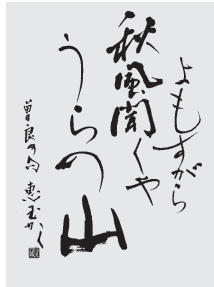 よもすがら
秋風聞くや
うらの山
曽良の句 恵玉かく